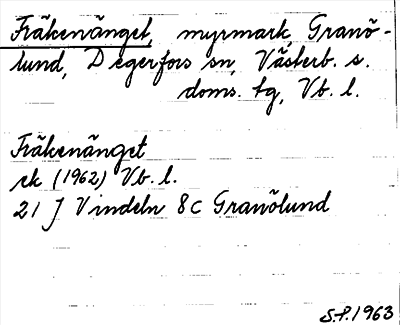 Fräkenänget, myrmark Granö-
lund, Degerfors sn, Västerb. s.
doms. tg, Vb. l.
Fräkenänget
ek (1962) Vb. l.
21 J Vindeln 8c Granölund
S.P. 1963